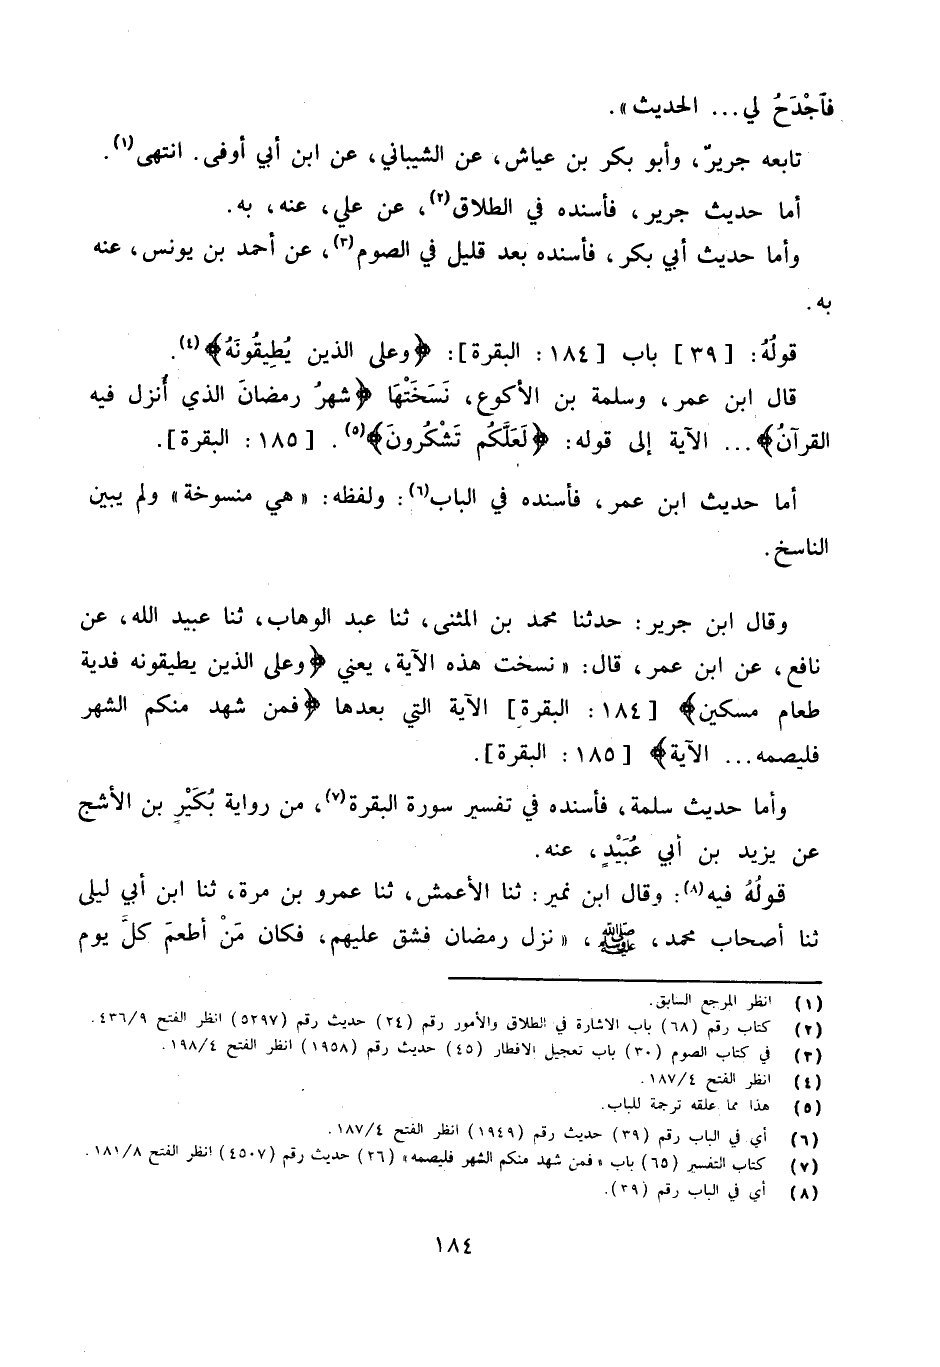 فَآجْدَحُ لي... الحديث».
تابعه جريرٌ، وأبو بكر بن عياش، عن الشيباني، عن ابن أبي أوفى. انتهى(١).
أما حديث جرير، فأسنده في الطلاق(٢)، عن علي، عنه، به.
وأما حديث أبي بكر، فأسنده بعد قليل في الصوم(٣)، عن أحمد بن يونس، عنه
به.
قولُهُ: [٣٩] باب [١٨٤: البقرة]: ﴿وعلى الذين يُطِيقُونَهُ﴾(٤).
قال ابن عمر، وسلمة بن الأكوع، نَسَخَتْهَا ﴿شهرُ رمضانَ الذي أُنزل فيه
القرآنُ﴾... الآية إلى قوله: ﴿لَعَلَّكُم تَشْكُرونَ﴾(٥). [١٨٥: البقرة].
أما حديث ابن عمر، فأسنده في الباب(٦): ولفظه: «هي منسوخة» ولم يبين
الناسخ.
وقال ابن جرير: حدثنا محمد بن المثنى، ثنا عبد الوهاب، ثنا عبيد الله، عن
نافع، عن ابن عمر، قال: «نسخت هذه الآية، يعني ﴿وعلى الذين يطيقونه فدية
طعام مسكين﴾ [١٨٤: البقرة] الآية التي بعدها ﴿فمن شهد منكم الشهر
فليصمه... الآية﴾ [١٨٥: البقرة].
وأما حديث سلمة، فأسنده في تفسير سورة البقرة(٧)، من رواية بُكَيْرٍ بن الأشج
عن يزيد بن أبي عُبَيْدٍ، عنه.
قولُهُ فيه(٨): وقال ابن نمير: ثنا الأعمش، ثنا عمرو بن مرة، ثنا ابن أبي ليلى
ثنا أصحاب محمد، ﷺ، «نزل رمضان فشق عليهم، فكان مَنْ أطعمَ كلَّ يوم
(١) انظر المرجع السابق.
(٢) كتاب رقم (٦٨) باب الاشارة في الطلاق والأمور رقم (٢٤) حديث رقم (٥٢٩٧) انظر الفتح ٤٣٦/٩.
(٣) في كتاب الصوم (٣٠) باب تعجيل الافطار (٤٥) حديث رقم (١٩٥٨) انظر الفتح ١٩٨/٤.
(٤) انظر الفتح ١٨٧/٤.
(٥) هذا مما علقه ترجمة للباب.
(٦) أي في الباب رقم (٣٩) حديث رقم (١٩٤٩) انظر الفتح ١٨٧/٤.
(٧) كتاب التفسير (٦٥) باب «فمن شهد منكم الشهر فليصمه» (٢٦) حديث رقم (٤٥٠٧) انظر الفتح ١٨١/٨.
(٨) أي في الباب رقم (٣٩).
١٨٤